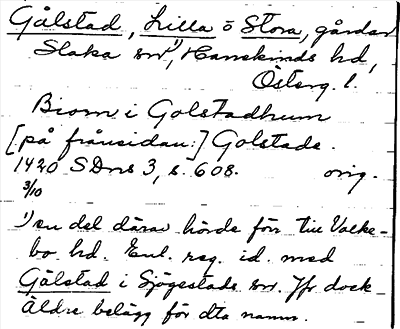 Gålstad, Lilla o Stora, gårdar
Slaka sn¹⁾, Hanekinds hd,
Österg. l.
Biorn i Golstadhum
[på frånsidan:] Golstade.
1420 SDns 3, s. 608. orig.
3/10
¹⁾ en del därav hörde förr till Valke-
bo hd. Enl. reg. id. med
Gålstad i Sjögestads sn. Jfr dock
äldre belägg för dta namn.